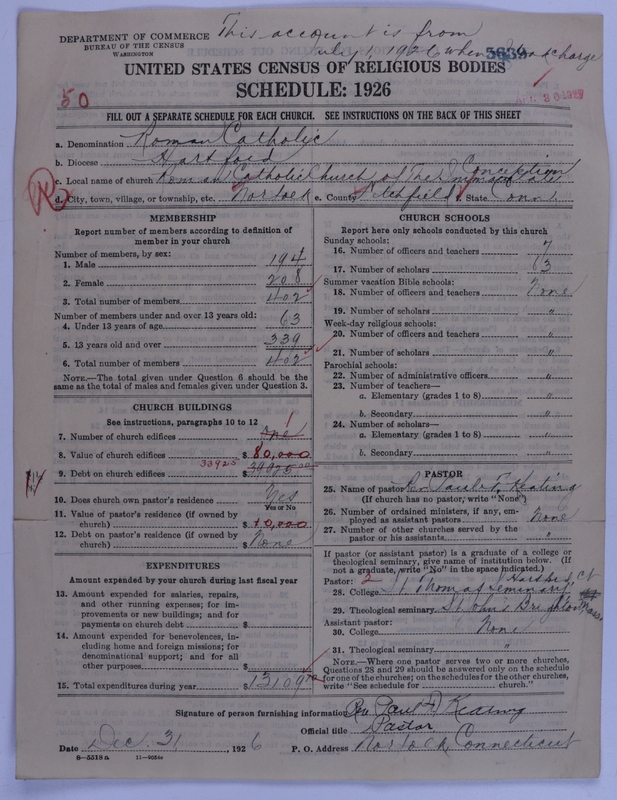 This account is from
DEPARTMENT OF COMMERCE
BUREAU OF THE CENSUS
WASHINGTON
July 1, 1926 when I took charge
UNITED STATES CENSUS OF RELIGIOUS BODIES
SCHEDULE: 1926
50
FILL OUT A SEPARATE SCHEDULE FOR EACH CHURCH. SEE INSTRUCTIONS ON THE BACK OF THIS SHEET
a. Denomination Roman Catholic
b. Diocese Hartford
c. Local name of church Roman Catholic Church of The Immaculate Conception
d. City, town, village, or township, etc. Norfolk e. County Litchfield f. State Conn.
MEMBERSHIP
Report number of members according to definition of member in your church
Number of members, by sex:
1. Male 194
2. Female 208
3. Total number of members 402
Number of members under and over 13 years old:
4. Under 13 years of age 63
5. 13 years old and over 339
6. Total number of members 402
NOTE.—The total given under Question 6 should be the same as the total of males and females given under Question 3.
CHURCH BUILDINGS
See instructions, paragraphs 10 to 12
7. Number of church edifices one 1
8. Value of church edifices $ 80,000
33925
9. Debt on church edifices $
10. Does church own pastor's residence Yes
Yes or No
11. Value of pastor's residence (if owned by church) $ 10,000
12. Debt on pastor's residence (if owned by church) $ None
EXPENDITURES
Amount expended by your church during last fiscal year
13. Amount expended for salaries, repairs, and other running expenses; for improvements or new buildings; and for payments on church debt $
14. Amount expended for benevolences, including home and foreign missions; for denominational support; and for all other purposes $
15. Total expenditures during year $ 13109
CHURCH SCHOOLS
Report here only schools conducted by this church
Sunday schools:
16. Number of officers and teachers 7
17. Number of scholars 63
Summer vacation Bible schools:
18. Number of officers and teachers None
19. Number of scholars "
Week-day religious schools:
20. Number of officers and teachers "
21. Number of scholars "
Parochial schools:
22. Number of administrative officers "
23. Number of teachers—
a. Elementary (grades 1 to 8) "
b. Secondary "
24. Number of scholars—
a. Elementary (grades 1 to 8) "
b. Secondary "
PASTOR
25. Name of pastor Rev Paul F. Keating
(If church has no pastor, write "None")
26. Number of ordained ministers, if any, employed as assistant pastors None
27. Number of other churches served by the pastor or his assistants "
If pastor (or assistant pastor) is a graduate of a college or theological seminary, give name of institution below. (If not a graduate, write "No" in the space indicated.)
Pastor: 2
28. College St Thomas Seminary Hartford, Ct
29. Theological seminary St John's Brighton Mass.
Assistant pastor:
30. College None
31. Theological seminary "
NOTE.—Where one pastor serves two or more churches, Questions 28 and 29 should be answered only on the schedule for one of the churches; on the schedules for the other churches, write "See schedule for church."
Signature of person furnishing information Rev Paul F Keating
Official title Pastor
Date Dec. 31, 1926 P. O. Address Norfolk, Connecticut
8—5518a 11—9054c